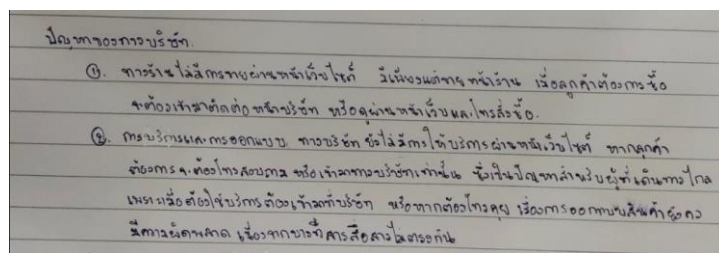 ปัญหาของทางบริษัท
①. ทางร้านไม่มีการขายผ่านหน้าเว็บไซต์ มีเพียงแต่ขายหน้าร้าน เมื่อลูกค้าต้องการซื้อ
จะต้องเข้ามาติดต่อหน้าบริษัท หรือดูผ่านหน้าเว็บและโทรสั่งซื้อ.
②. การบริการและการออกแบบ ทางบริษัท ยังไม่มีการให้บริการผ่านหน้าเว็บไซต์ หากลูกค้า
ต้องการจะต้องโทรสอบถาม หรือเข้ามาทางบริษัทเท่านั้น ซึ่งเป็นปัญหาสำหรับผู้ที่เดินทางไกล
เพราะเมื่อต้องใช้บริการต้องเข้ามาที่บริษัท หรือหากต้องโทรคุย เรื่องการออกแบบสินค้ายังคง
มีความผิดพลาด เนื่องจากบางทีการสื่อสารไม่ตรงกัน